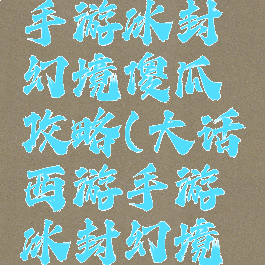 手游冰封
幻境傻瓜
攻略(大话
西游手游
冰封幻境